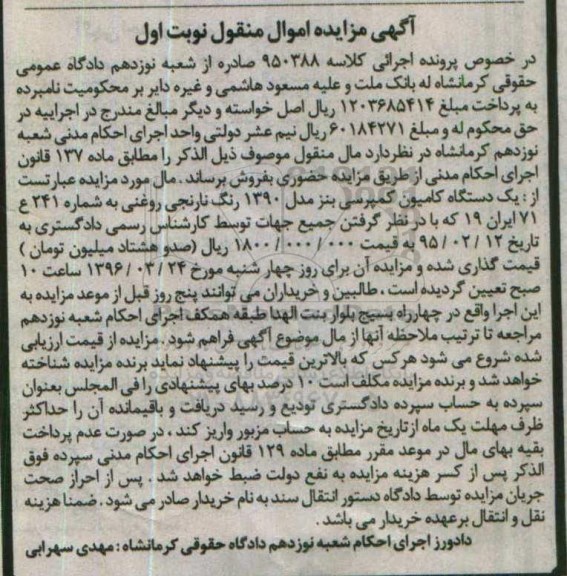 آگهی مزایده اموال منقول نوبت اول
در خصوص پرونده اجرائی کلاسه ۹۵۰۳۸۸ صادره از شعبه نوزدهم دادگاه عمومی
حقوقی کرمانشاه له بانک ملت و علیه مسعود هاشمی و غیره دایر بر محکومیت نامبرده
به پرداخت مبلغ ۱۲۰۳۶۸۵۴۱۴ ریال اصل خواسته و دیگر مبالغ مندرج در اجراییه در
حق محکوم له و مبلغ ۶۰۱۸۴۲۷۱ ریال نیم عشر دولتی واحد اجرای احکام مدنی شعبه
نوزدهم کرمانشاه در نظر دارد مال منقول موصوف ذیل الذکر را مطابق ماده ۱۳۷ قانون
اجرای احکام مدنی از طریق مزایده حضوری بفروش برساند . مال مورد مزایده عبارتست
از : یک دستگاه کامیون کمپرسی بنز مدل ۱۳۹۰ رنگ نارنجی روغنی به شماره ۲۴۱ ع
۷۱ ایران ۱۹ که با در نظر گرفتن جمیع جهات توسط کارشناس رسمی دادگستری به
تاریخ ۱۲ / ۰۲ / ۹۵ به قیمت ۰۰۰ / ۰۰۰ / ۱۸۰۰ ریال (صدو هشتاد میلیون تومان )
قیمت گذاری شده و مزایده آن برای روز چهار شنبه مورخ ۲۴ / ۰۳ / ۱۳۹۶ ساعت ۱۰
صبح تعیین گردیده است ، طالبین و خریداران می توانند پنج روز قبل از موعد مزایده به
این اجرا واقع در چهارراه بسیج بلوار بنت الهدا طبقه همکف اجرای احکام شعبه نوزدهم
مراجعه تا ترتیب ملاحظه آنها از مال موضوع آگهی فراهم شود . مزایده از قیمت ارزیابی
شده شروع می شود هر کس که بالاترین قیمت را پیشنهاد نماید برنده مزایده شناخته
خواهد شد و برنده مزایده مکلف است ۱۰ درصد بهای پیشنهادی را فی المجلس بعنوان
سپرده به حساب سپرده دادگستری تودیع و رسید دریافت و باقیمانده آن را حداکثر
ظرف مهلت یک ماه از تاریخ مزایده به حساب مزبور واریز کند ، در صورت عدم پرداخت
بقیه بهای مال در موعد مقرر مطابق ماده ۱۲۹ قانون اجرای احکام مدنی سپرده فوق
الذکر پس از کسر هزینه مزایده به نفع دولت ضبط خواهد شد . پس از احراز صحت
جریان مزایده توسط دادگاه دستور انتقال سند به نام خریدار صادر می شود . ضمنا هزینه
نقل و انتقال برعهده خریدار می باشد .
دادورز اجرای احکام شعبه نوزدهم دادگاه حقوقی کرمانشاه : مهدی سهرابی